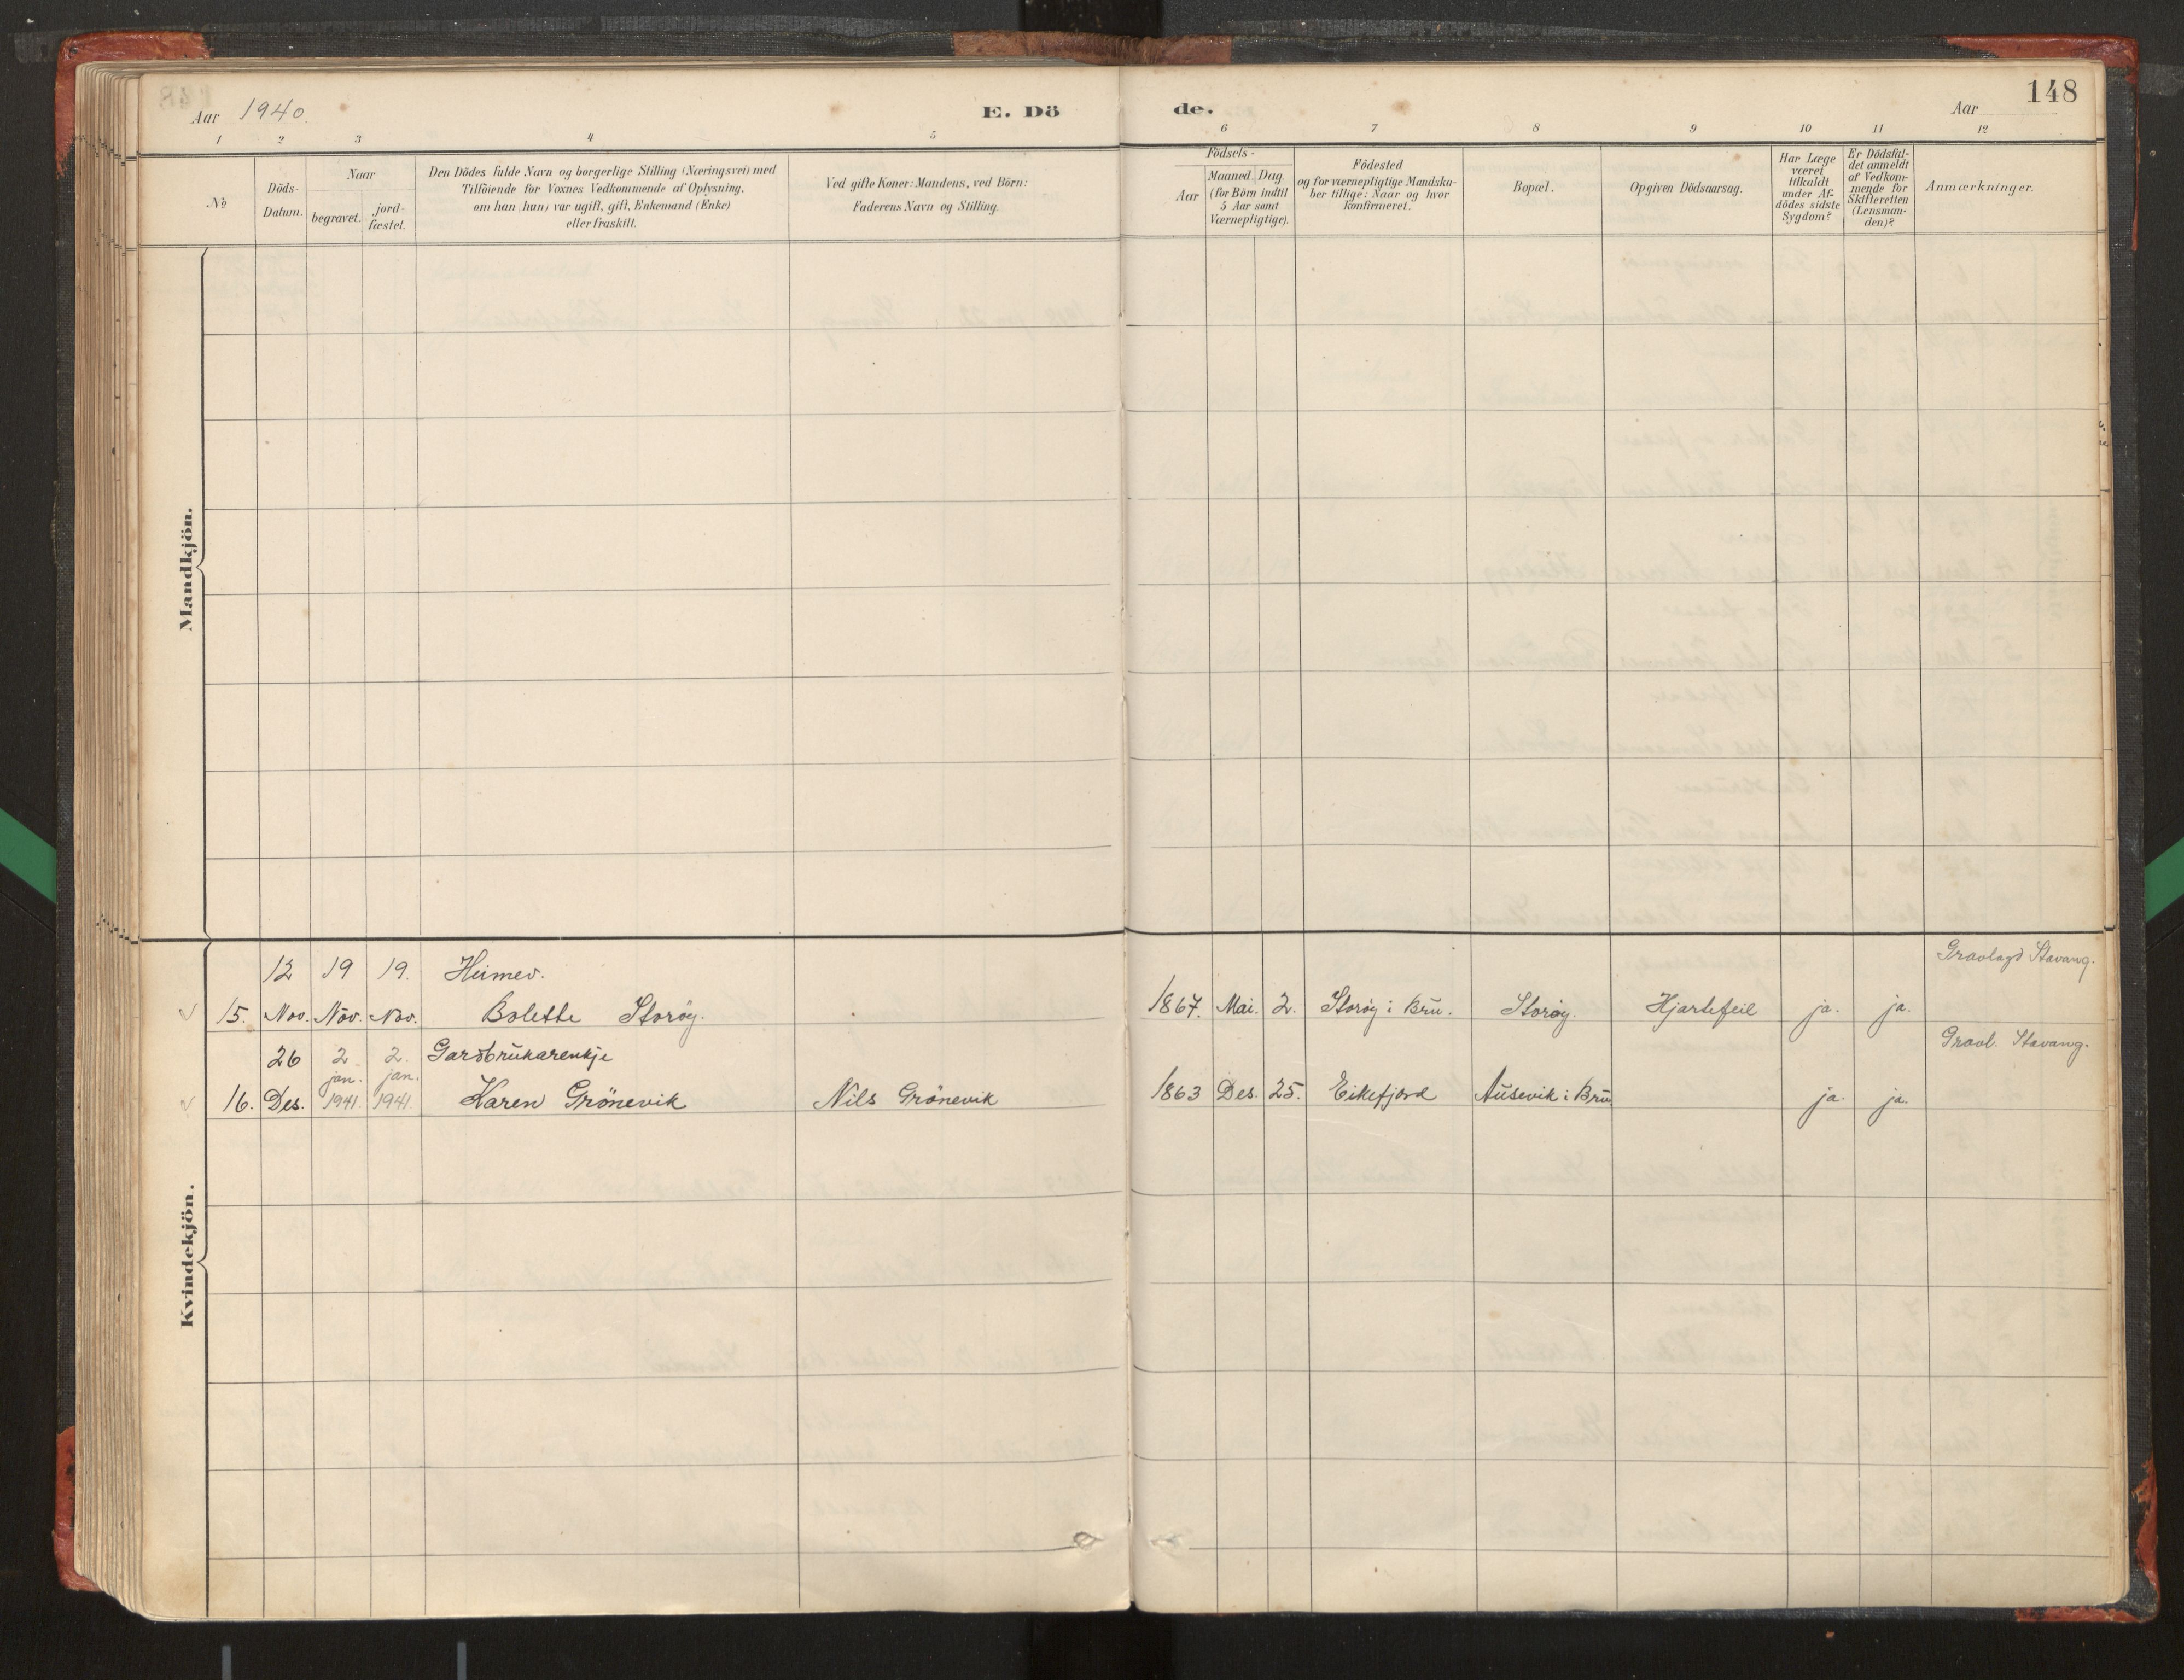 148
Aar 1940.
E. Dö
de.
Aar
1 2 3 4 5 6 7 8 9 10 11 12
No
Döds-
Datum.
Naar
begravet.
jord-
fæstet.
Den Dödes fulde Navn og borgerlige Stilling (Næringsvei) med
Tilföiende for Voxnes Vedkommende af Oplysning,
om han (hun) var ugift, gift, Enkemand (Enke)
eller fraskilt.
Ved gifte Koner: Mandens, ved Börn:
Faderens Navn og Stilling.
Födsels-
Aar
Maaned. Dag.
(for Börn indtil
5 Aar samt
Værnepligtige).
Födested
og for værnepligtige Mandska-
ber tillige: Naar og hvor
konfirmeret.
Bopæl.
Opgiven Dödsaarsag.
Har Læge
været
tilkaldt
under Af-
dödes sidste
Sygdom?
Er Dödsfal-
det anmeldt
af Vedkom-
mende for
Skifteretten
(Lensman-
den)?
Anmærkninger.
Mandkjön.
Kvindekjön.
12 19 19. Heimev. Gravlagd Stavang.
15. Nov. Nov. Nov. Bolette Storöy. 1867. Mai. 2. Storöy i Bru. Storöy. Hjartefeil ja. ja.
26 2 2. Gardbrukarenkje Gravl. Stavang.
jan. jan.
16. Des. 1941. 1941. Karen Grönevik Nils Grönevik 1863 Des. 25. Eikefjord Ausevik i Bru ja ja.